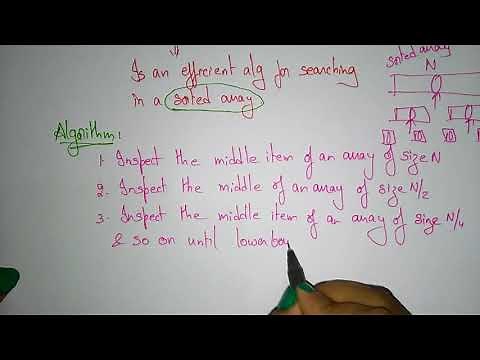 Is an efficient alg for searching
in a soted array
Algorithm:
1. Inspect the middle item of an array of size N
2. Inspect the middle of an array of size N/2
3. Inspect the middle item of an array of size N/4
& so on until lowerbou
soted array
N